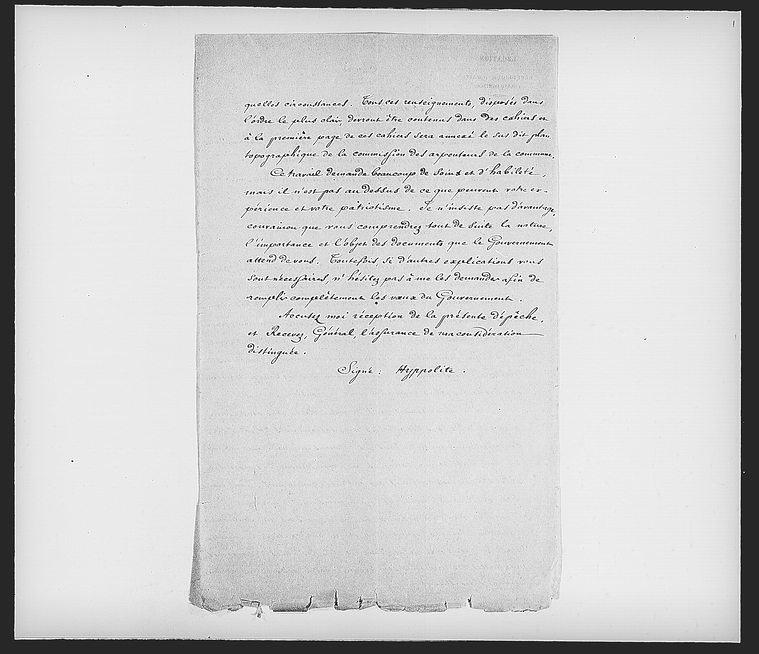 quelles circonstances. Tous ces renseignements, disposés dans
l'ordre le plus clair devront être contenus dans des cahiers et
à la première page de ces cahiers sera annexé le sus dit plan
topographique de la commission des arpenteurs de la commune.
Ce travail demande beaucoup de soins et d'habileté,
mais il n'est pas au dessus de ce que peuvent votre ex-
périence et votre patriotisme. Je n'insiste pas davantage,
convaincu que vous comprendrez tout de suite la nature,
l'importance et l'objet des documents que le Gouvernement
attend de vous. Toutefois, si d'autres explications vous
sont nécessaires, n'hésitez pas à me les demander afin de
remplir complètement les vœux du Gouvernement.
Accusez moi réception de la présente dépêche,
et Recevez, Général, l'assurance de ma considération
distinguée.
Signé : Hyppolite.